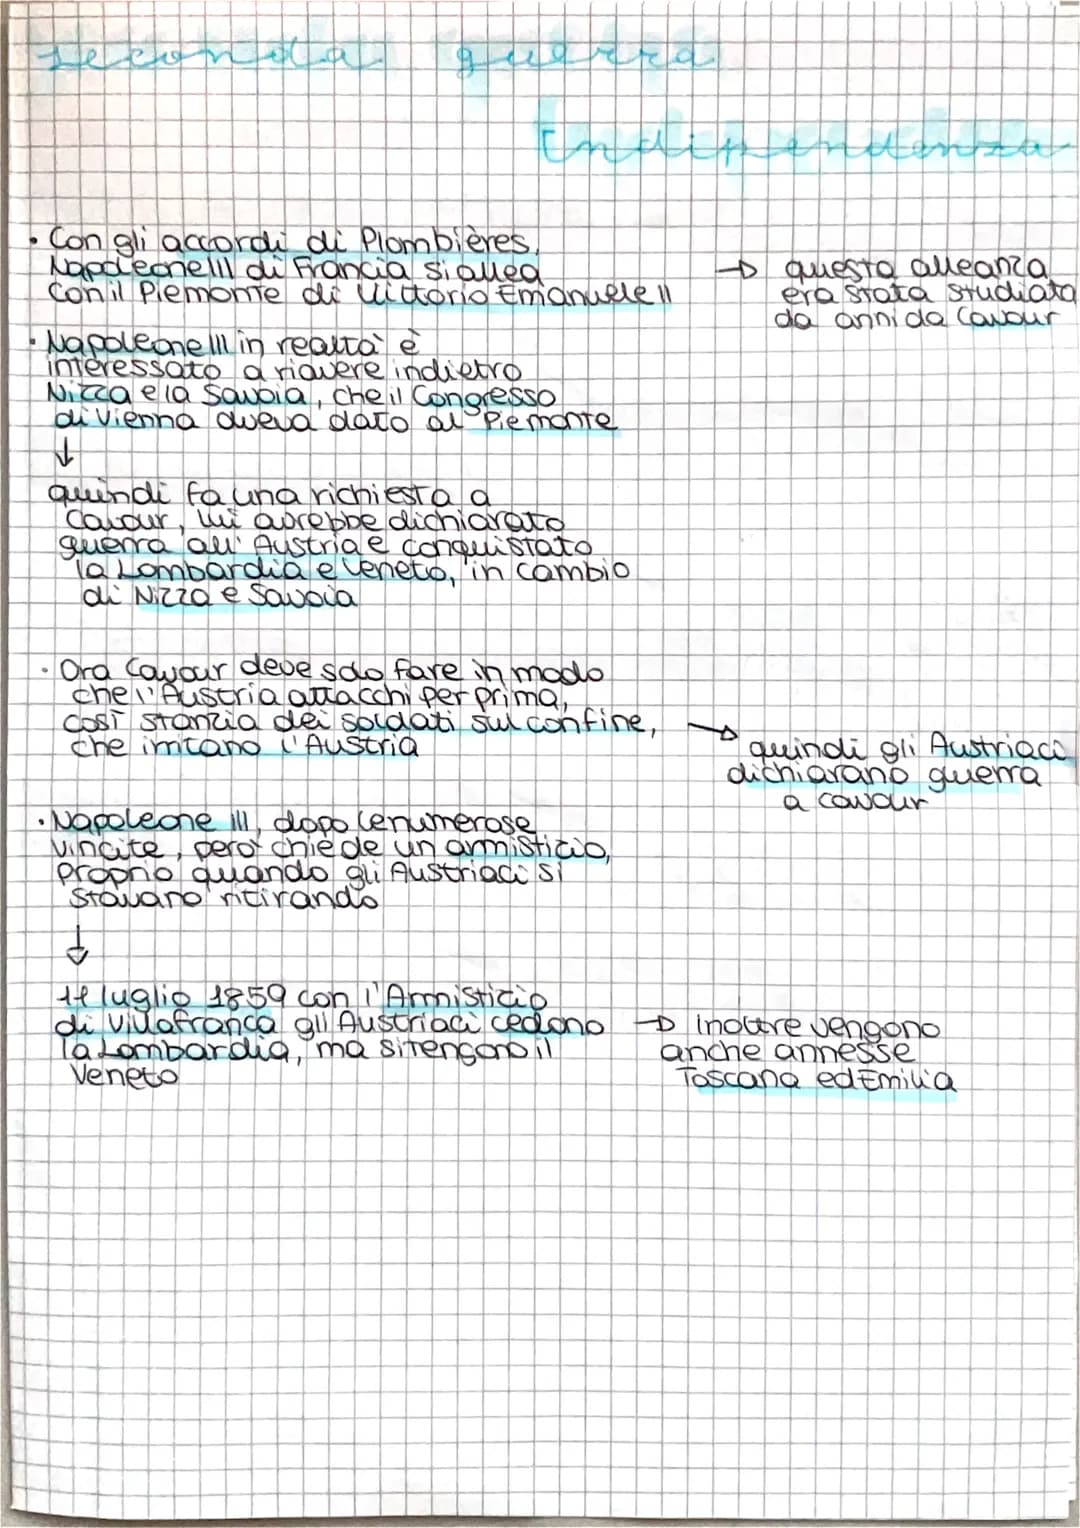 seconda guerra
Indipendenza
• Con gli accordi di Plombières,
Napoleone III di Francia si allea
con il Piemonte di Vittorio Emanuele II
→ questa alleanza
era stata studiata
da anni da Cavour
• Napoleone III in realtà è
interessato a riavere indietro
Nizza e la Savoia, che il Congresso
di Vienna aveva dato al Piemonte
↓
quindi fa una richiesta a
Cavour, lui avrebbe dichiarato
guerra all'Austria e conquistato
la Lombardia e Veneto, in cambio
di Nizza e Savoia
• Ora Cavour deve solo fare in modo
che l'Austria attacchi per prima,
così stanzia dei soldati sul confine,
che irritano l'Austria
→ quindi gli Austriaci
dichiarano guerra
a Cavour
• Napoleone III, dopo le numerose
vincite, però chiede un armistizio,
proprio quando gli Austriaci si
stavano ritirando
↓
11 luglio 1859 con l'Armistizio
di Villafranca gli Austriaci cedono
la Lombardia, ma si tengono il
Veneto
→ inoltre vengono
anche annesse
Toscana ed Emilia